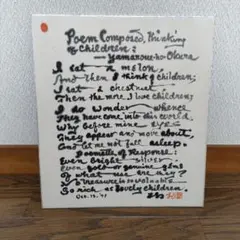 Poem Composed, Thinking
of Children:
—Yamanoue-no Okura
I eat a melon,
And then I think of children;
I eat a chestnut
Then the more I love children;
I do wonder whence
They have come into this world,
Why before mine eyes
They appear and move about,
And let me not fall asleep.
Of Response:
Even bright silver,
Even gold or genuine gems
Of what use are they?
No treasure is so valuable
So much as lovely children.
Oct. 19, '75